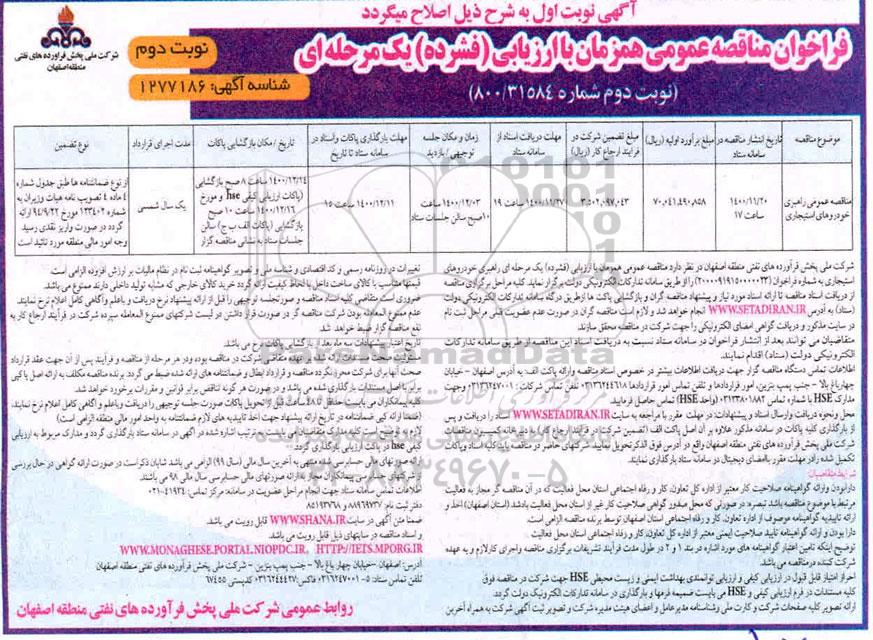 آگهی نوبت اول به شرح ذیل اصلاح میگردد
فراخوان مناقصه عمومی همزمان با ارزیابی (فشرده) یک مرحله ای
(نوبت دوم شماره ۸۰۰/۳۱۵۸۴)
نوبت دوم
شناسه آگهی: ۱۲۷۷۱۸۶
شرکت ملی پخش فرآورده های نفتی
منطقه اصفهان
موضوع مناقصه
تاریخ انتشار مناقصه در سامانه ستاد
مبلغ برآورد اولیه (ریال)
مبلغ تضمین شرکت در فرایند ارجاع کار (ریال)
مهلت دریافت اسناد از سامانه ستاد
زمان و مکان جلسه توجیهی / بازدید
مهلت بارگذاری پاکات و اسناد در سامانه ستاد تا تاریخ
تاریخ / مکان بازگشایی پاکات
مدت اجرای قرارداد
نوع تضمین
مناقصه عمومی راهبری خودروهای استیجاری
۱۴۰۰/۱۱/۲۰ ساعت ۱۷
۷۰,۰۴۱,۴۹۰,۸۵۸
۳,۵۰۲,۰۹۷,۰۴۳
۱۴۰۰/۱۱/۲۷ ساعت ۱۹
۱۴۰۰/۱۲/۰۳ ساعت ۱۰ صبح سالن جلسات ستاد
۱۴۰۰/۱۲/۱۱ ساعت ۱۵
۱۴۰۰/۱۲/۱۴ ساعت ۸ صبح بازگشایی (پاکات ارزیابی کیفی hse) و مورخ ۱۴۰۰/۱۲/۱۶ ساعت ۱۰ صبح بازگشایی (پاکات الف ب ج) سالن جلسات ستاد به نشانی مناقصه گزار
یک سال شمسی
از نوع ضمانتنامه ها طبق جدول شماره ۴ ماده ۴ تصویب نامه هیات وزیران به شماره ۱۲۳۴۰۲ مورخ ۹۴/۹/۲۲ می گردد در صورت واریز نقدی رسید وجه امور مالی منطقه مورد تائید است
شرکت ملی پخش فرآورده های نفتی منطقه اصفهان در نظر دارد مناقصه عمومی همزمان با ارزیابی (فشرده) یک مرحله ای راهبری خودروهای
استیجاری به شماره فراخوان (۲۰۰۰۰۹۱۹۱۵۰۰۰۰۲۳) را از طریق سامانه تدارکات الکترونیکی دولت برگزار نمایند. کلیه مراحل برگزاری مناقصه
از دریافت اسناد مناقصه تا ارائه اسناد مورد نیاز و پیشنهاد مناقصه گران و بازگشایی پاکت ها از طریق درگاه سامانه تدارکات الکترونیکی دولت
(ستاد) به آدرس WWW.SETADIRAN.IR انجام خواهد شد و لازم است مناقصه گران در صورت عدم عضویت قبلی مراحل ثبت نام
در سایت مذکور و دریافت گواهی امضای الکترونیکی را جهت شرکت در مناقصه محقق سازند.
متقاضیان می توانند بعد از انتشار فراخوان در سامانه ستاد نسبت به دریافت اسناد این مناقصه از طریق سامانه تدارکات
الکترونیکی دولت (ستاد) اقدام نمایند.
اطلاعات تماس دستگاه مناقصه گزار جهت دریافت اطلاعات بیشتر در خصوص اسناد مناقصه وارائه پاکت الف: به آدرس اصفهان - خیابان
چهارباغ بالا - جنب پمپ بنزین، امور قراردادها و تلفن تماس امور قراردادها ۰۳۱۳۶۲۴۴۶۱۸ تلفن تماس شرکت: ۰۳۱۳۶۲۴۷۰۰۱ وجهت
مدارک HSE با شماره تماس ۰۳۱۳۳۸۰۱۸۸۲ (واحد HSE) تماس حاصل فرمایید.
محل ونحوه دریافت وارسال اسناد و پیشنهادات: در مهلت مقرر با مراجعه به سایت WWW.SETADIRAN.IR اسناد را دریافت و پس
از بارگذاری کلیه پاکات در سامانه مذکور علاوه بر آن اصل پاکت الف (تضمین شرکت در فرایند ارجاع کار) با دبیرخانه کمیسیون مناقصات
شرکت ملی پخش فرآورده های نفتی منطقه اصفهان واقع در آدرس فوق الذکر تحویل نمایید. شرکتهای حاضر در مناقصه باید کلیه اسناد و پاکات
تکمیل شده را در مهلت مقرر با امضای دیجیتال در سامانه ستاد بارگذاری نمایند.
شرایط متقاضیان:
دارا بودن وارائه گواهینامه صلاحیت کار معتبر از اداره کل تعاون، کار و رفاه اجتماعی استان محل فعالیت که در آن مناقصه گر مجاز به فعالیت
مرتبط با موضوع مناقصه باشد تبصره: در صورتی که محل صدور گواهی صلاحیت کار غیر از استان محل فعالیت باشد، (استان اصفهان) اخذ و
ارائه تاییدیه گواهینامه موصوف از اداره تعاون، کار و رفاه اجتماعی استان اصفهان توسط برنده مناقصه الزامی است.
دارا بودن و ارائه گواهینامه تایید صلاحیت ایمنی معتبر از اداره کل تعاون، کار و رفاه اجتماعی استان محل فعالیت
توضیح اینکه تامین اعتبار گواهینامه های مورد اشاره در بند ۱ و ۲ در طول مدت فرآیند تشریفات برگزاری مناقصه واجرای کار لازم و به عهده
شرکت کننده در مناقصه می باشد.
احراز امتیاز قابل قبول در ارزیابی کیفی و ارزیابی توانمندی بهداشت ایمنی و زیست محیطی HSE جهت شرکت در مناقصه فوق
کلیه مستندات در فرم ارزیابی کیفی و HSE می بایست ضمیمه فرمها و بارگذاری در سامانه تدارکات الکترونیک دولت گردد.
ارائه تصویر کلیه صفحات شرکت و کارت ملی و شناسنامه مدیرعامل و اعضای هیئت مدیره شرکت و تصویر ثبت آگهی شرکت به همراه آخرین
تغییرات در روزنامه رسمی و کد اقتصادی و شناسه ملی و تصویر گواهینامه ثبت نام در نظام مالیات بر ارزش افزوده الزامی است.
قیمتها متناسب با کالای ساخت داخل با لحاظ کیفیت ارائه گردد خرید کالای خارجی که مشابه تولید داخلی دارند ممنوع می باشد.
ضروری است متقاضی کلیه اسناد مناقصه و صورتجلسه توجیهی را قبل از ارائه پیشنهاد نرخ دریافت و باعلم وآگاهی کامل اعلام نرخ نمایند.
عدم ممنوع المعامله بودن شرکت مناقصه گر در صورت قرار داشتن در لیست شرکتهای ممنوع المعامله سپرده شرکت در فرآیند ارجاع کار به
نفع مناقصه گزار ضبط خواهد شد.
تاریخ اعتبار پیشنهادات سه ماه بعد از بازگشایی پاکات نرخ می باشد.
مسئولیت صحت مستندات ارائه شده بر عهده متقاضی شرکت در مناقصه بوده ودر هر مرحله از مناقصه و فرآیند پس از آن جهت عقد قرارداد
صحت آنها برای شرکت محرز نگردد مناقصه و قرارداد ابطال و ضمانتنامه های ارائه شده ضبط می گردد. برنده مناقصه مکلف به ارائه اصل یا کپی
برابر با اصل مستندات بارگذاری شده می باشد و در صورت هر گونه تناقض برابر قوانین و مقررات برخورد خواهد شد.
کلیه پیمانکاران می بایست حداقل ۴۸ ساعت قبل از تحویل پاکات صورت جلسه توجیهی را دریافت و باعلم و آگاهی کامل اعلام نرخ نمایند.
(ضمنا ارائه کپی ضمانتنامه در تاریخ ارائه پیشنهاد جهت اخذ تاییدیه های لازم ضمانتنامه به واحد امور مالی منطقه الزامی است)
لازم به توضیح است کلیه مدارک متقاضیان می بایست به ترتیب اشاره شده در آگهی در سامانه ستاد بارگذاری گردد و مدارک مربوط به ارزیابی
کیفی hse در پاکت ارزیابی بارگذاری گردد.
ارائه صورتهای مالی حسابرسی شده منتهی به آخرین سال مالی (سال ۹۹) الزامی می باشد شایان ذکر است در صورت ارائه گواهی در حال بررسی
از شرکتهای حسابرسی پیمانکاران مجاز به ارائه صورتهای مالی حسابرسی سال مالی ۹۸ می باشند.
اطلاعات تماس سامانه ستاد جهت انجام مراحل عضویت در سامانه: مرکز تماس: ۴۱۹۳۴-۰۲۱
دفتر ثبت نام: ۸۸۹۶۹۷۳۷ و ۸۵۱۹۳۷۶۸
ضمنا متن آگهی در سایت WWW.SHANA.IR قابل رویت می باشد.
و اسناد مناقصه در سایتهای ذیل قابل رویت می باشد.
WWW.MONAGHESE.PORTAL.NIOPDC.IR, HTTP://IETS.MPORG.IR
آدرس: اصفهان - خیابان چهار باغ بالا - جنب پمپ بنزین - شرکت ملی پخش فرآورده های نفتی منطقه اصفهان
تلفن تماس ستاد: ۵-۰۳۱۳۶۲۴۷۰۰۱ فاکس: ۰۳۱۳۶۲۴۴۴۲۷ کدپستی ۶۷۴۵۵
روابط عمومی شرکت ملی پخش فرآورده های نفتی منطقه اصفهان